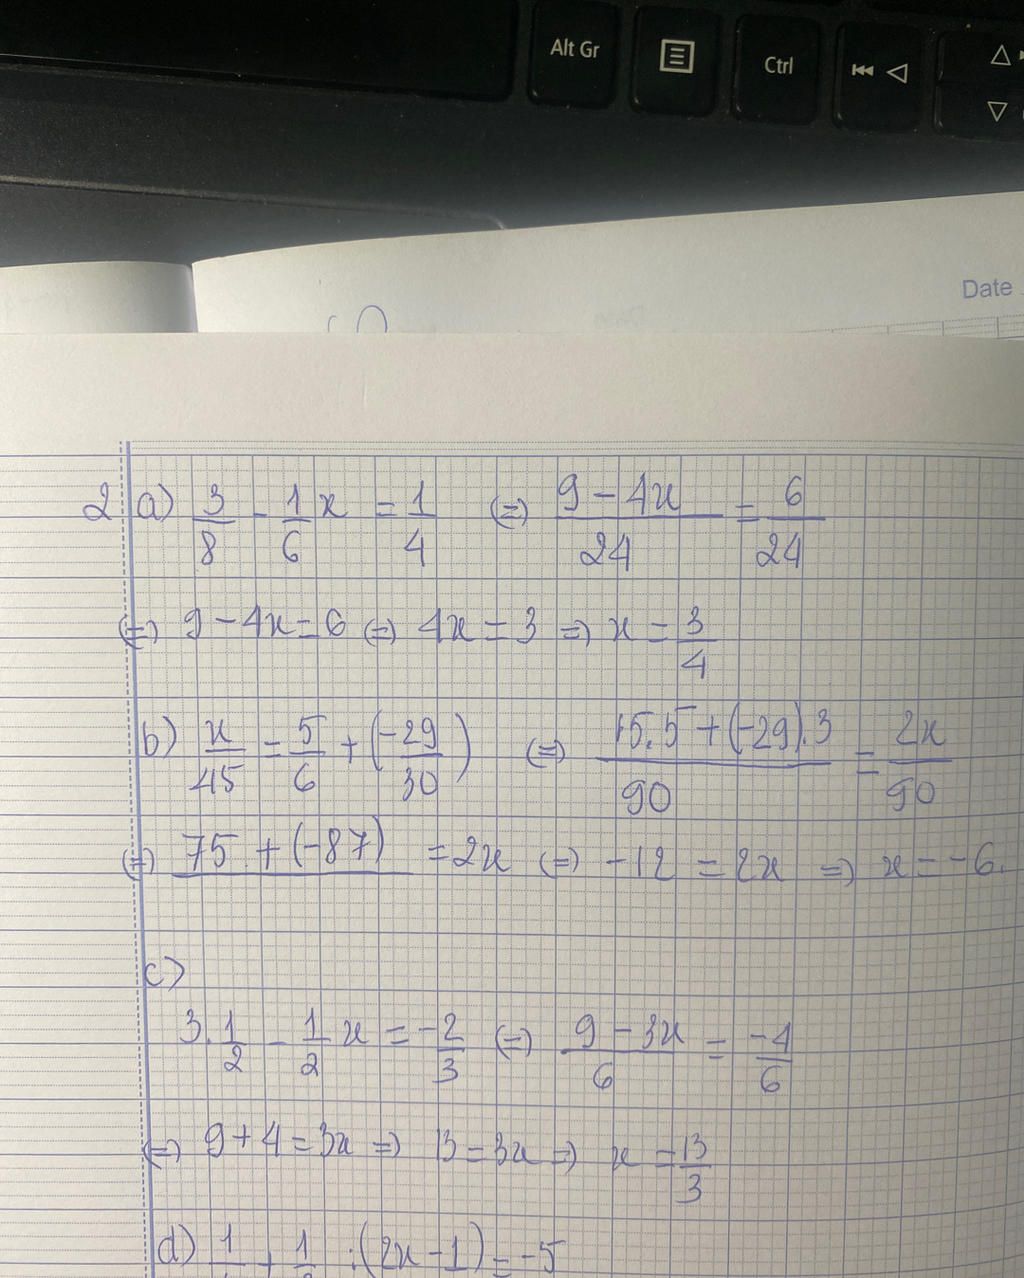 Alt Gr
Ctrl
Date
2 a) 3/8 - 1/6 x = 1/4 (=) (9 - 4x)/24 = 6/24
(=) 9 - 4x = 6 (=) 4x = 3 =) x = 3/4
b) x/45 = 5/6 + (-29/30) (=) (15.5 + (-29).3)/90 = 2x/90
(=) 75 + (-87) = 2x (=) -12 = 2x =) x = -6.
c)
3.1/2 - 1/2 x = -2/3 (=) (9 - 3x)/6 = -4/6
(=) 9 + 4 = 3x =) 13 = 3x =) x = 13/3
d) : (2x - 1) = -5